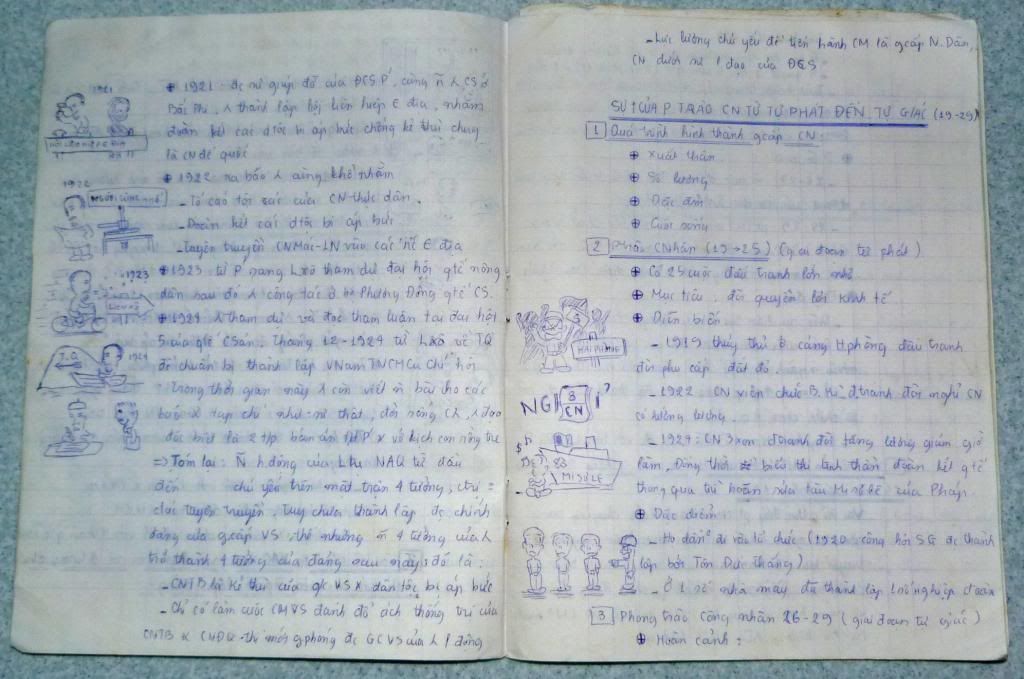 1921
⊕ 1921: đc sự giúp đỡ của ĐCS P', cùng ñ λ CS ở
Bắc Phi, λ thành lập hội liên hiệp ∈ địa, nhằm
đoàn kết các dtộc bị áp bức chống kẻ thù chung
là CN đế quốc
1922
NGƯỜI CÙNG KHỔ
⊕ 1922 ra báo λ cùng khổ nhằm
- Tố cáo tội ác của CN thực dân.
- Đoàn kết các dtộc bị áp bức
- Tuyên truyền CNMác-LN vào các ∈ địa
1923
⊕ 1923 từ P sang Lxô tham dự đại hội qtế nông
dân sau đó λ công tác ở bộ Phương Đông qtế CS.
1924
T.Q
⊕ 1924 λ tham dự và đọc tham luận tại đại hội
5 của qtế CSản. Tháng 12-1924 từ Lxô về TQ
để chuẩn bị thành lập VNam TNCMCu Chí hội
Trong thời gian này λ còn viết ñ bài cho các
báo x tạp chí như sự thật, đời sống CN, λ đạo
đặc biệt là 2 t/p bản án P' x vở kịch con rồng tre
=> Tóm lại: Ñ h.động của Ltu NAQ từ đầu
đến chủ yếu trên mặt trận 4 tưởng, ctrị =
tuyên truyền, tuy chưa thành lập đc chính
đảng của g.cấp VS, thế nhưng ñ 4 tưởng của λ
trở thành 4 tưởng của đảng sau này, đó là:
- CNTB là kẻ thù của gc VS x dân tộc bị áp bức
- Chỉ có làm cuộc CMVS đánh đổ ách thống trị của
CNTB x CNĐQ thì mới g.phóng đc GCVS của λ l động
- Lực lượng chủ yếu để tiến hành CM là g.cấp N. Dân,
CN dưới sự l đạo của ĐCS
SỰ ↑ CỦA P TRÀO CN TỪ TỰ PHÁT ĐẾN TỰ GIÁC (19-29)
1 Quá trình hình thành g.cấp CN:
⊕ Xuất thân
⊕ Số lượng
⊕ Đặc điểm
⊕ Cuộc sống
2 Ptrào CNhân (19->25) (giai đoạn tự phát)
⊕ Có 25 cuộc đấu tranh lớn nhỏ
⊕ Mục tiêu: đòi quyền lợi kinh tế
⊕ Diễn biến
HẢI PHÒNG
- 1919 thủy thủ ở cảng H.phòng đấu tranh
đòi phụ cấp đắt đỏ.
NGHỈ CN ?
- 1922 CN viên chức B. Kì đ.tranh đòi nghỉ CN
có hưởng lương.
$
MISƠLE
- 1924: CN Bason đtranh đòi tăng lương giảm giờ
làm, Đồng thời để biểu thị tinh thần đoàn kết qtế
thông qua trì hoãn sửa tàu MisơLê của Pháp.
⊕ Đặc điểm
- Họ dần đi vào tổ chức (1920 công hội SG đc thành
lập bởi Tôn Đức Thắng)
- Ở 1 số nhà máy đã thành lập nghiệp đoàn
3 Phong trào công nhân 26-29 (giai đoạn tự giác)
⊕ Hoàn cảnh: